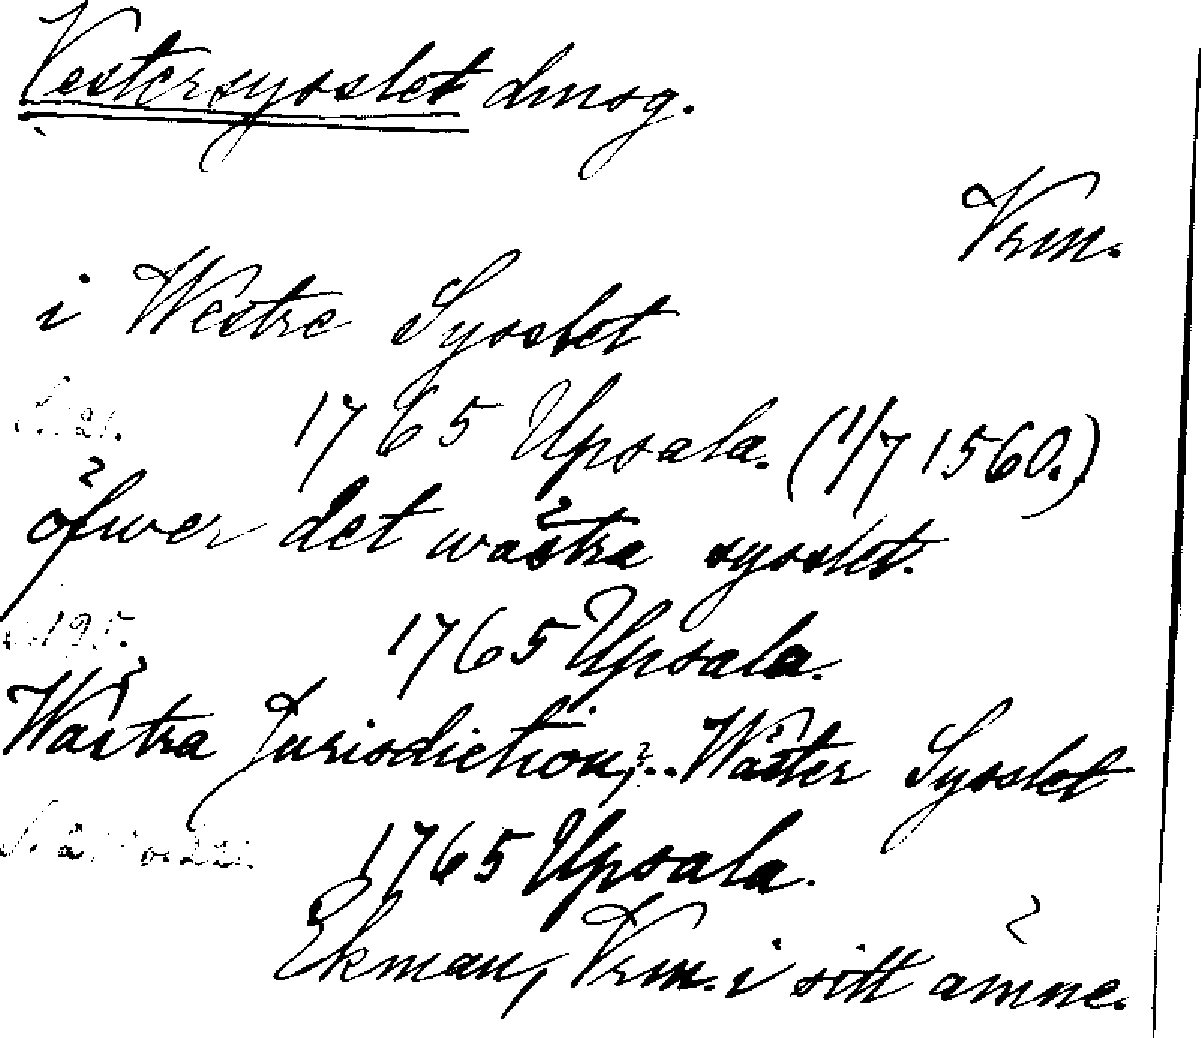 Vestersysslet dmsg.
Vrm.
i Westre Sysslet
S. 21. 1765 Upsala. (1/7 1560.)
öfwer det wästra sysslet.
s. 195. 1765 Upsala.
Wästra Jurisdiction, ... Wäster Sysslet
1765 Upsala.
Ekman, Vrm. i sitt ämne.